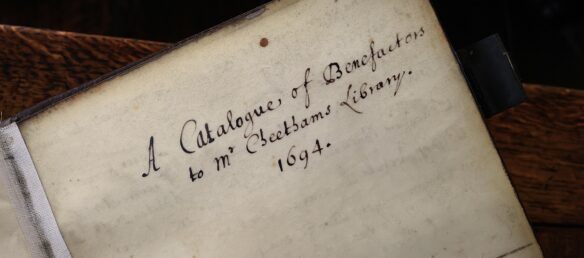 A Catalogue of Benefactors
to mr Cheethams Library.
1694.